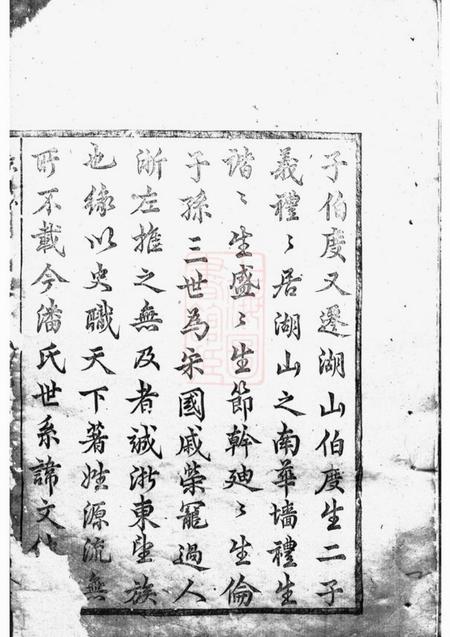 子伯度又遷湖山伯度生二子
義禮〻居湖山之南華墻禮生
諧〻生盛〻生節幹廸〻生倫
子孫三世為宋國戚榮寵過人
浙左推之無及者誠浙東望族
也緣以史職天下著姓源流無
所不載今潘氏世系諦文